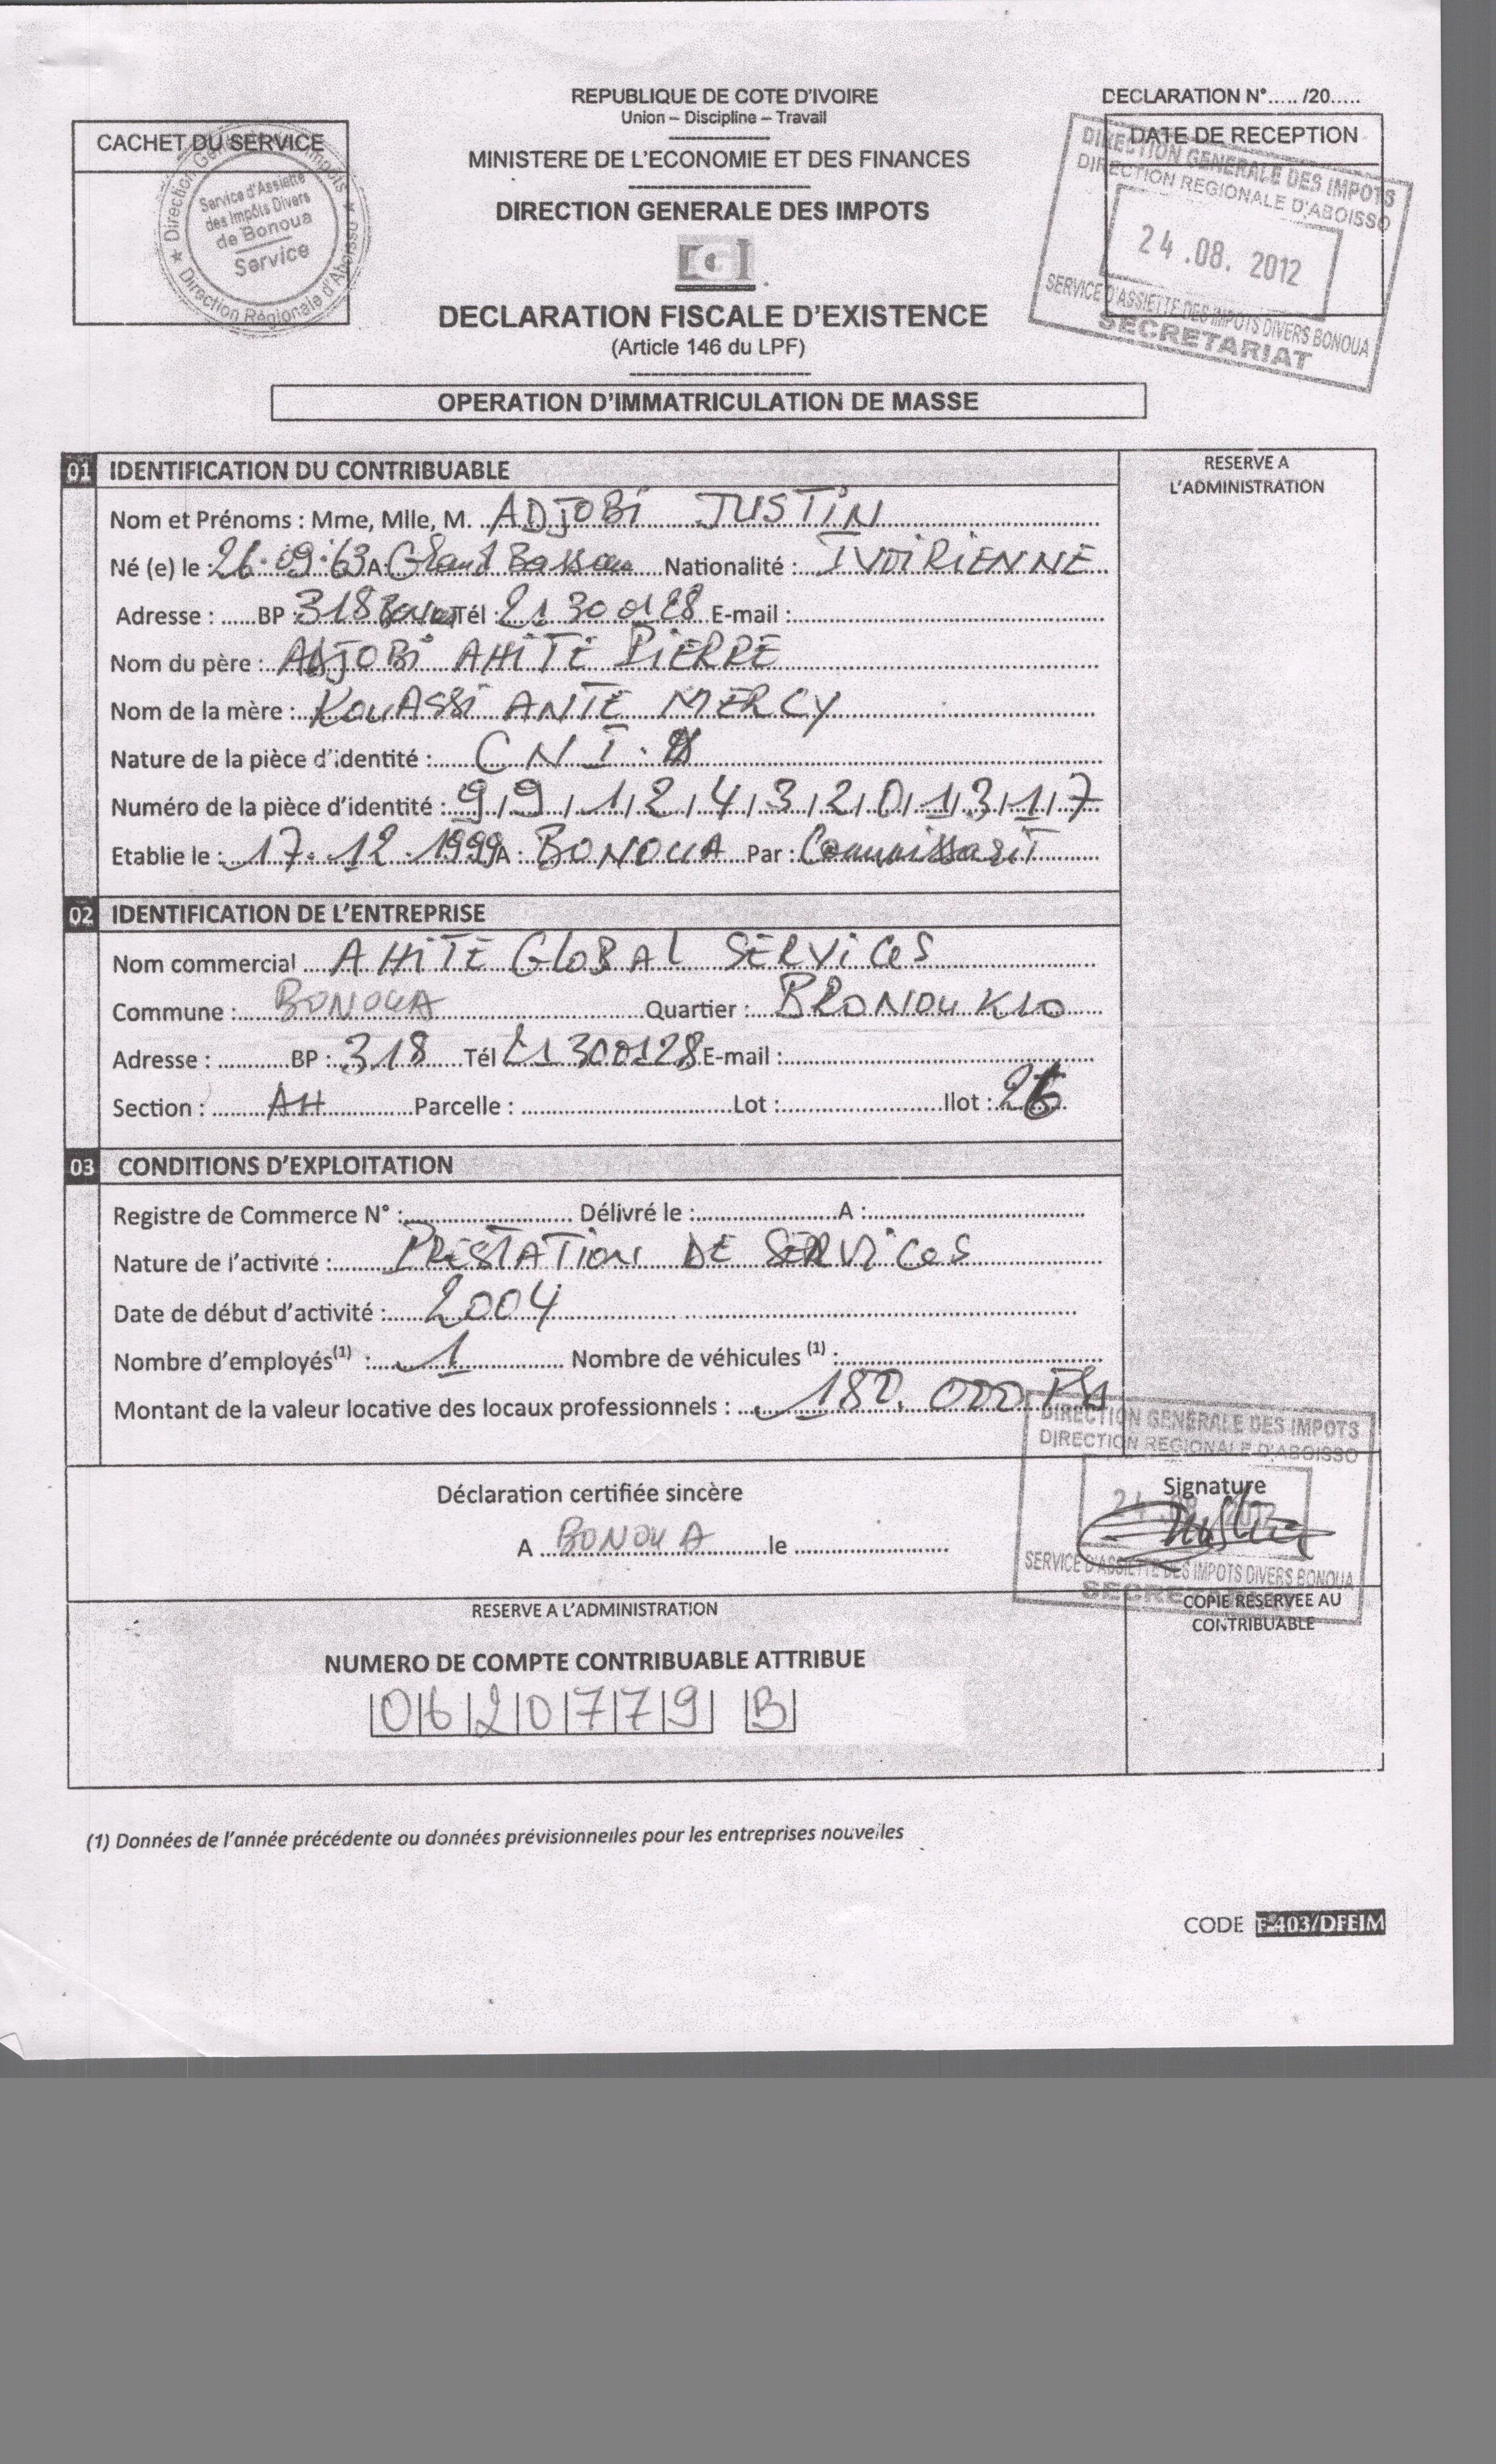 REPUBLIQUE DE COTE D'IVOIRE
Union – Discipline – Travail
DECLARATION N°..... /20.....
CACHET DU SERVICE
Direction Générale des Impots
Service d'Assiette
des Impôts Divers
de Bonoua
Service
Direction Régionale d'Aboisso
MINISTERE DE L'ECONOMIE ET DES FINANCES
DIRECTION GENERALE DES IMPOTS
DATE DE RECEPTION
DIRECTION GENERALE DES IMPOTS
DIRECTION REGIONALE D'ABOISSO
24.08.2012
SERVICE D'ASSIETTE DES IMPOTS DIVERS BONOUA
SECRETARIAT
DECLARATION FISCALE D'EXISTENCE
(Article 146 du LPF)
OPERATION D'IMMATRICULATION DE MASSE
01 IDENTIFICATION DU CONTRIBUABLE
RESERVE A
L'ADMINISTRATION
Nom et Prénoms : Mme, Mlle, M. ADJOBI JUSTIN
Né (e) le : 26.09.63 A : Grand Bassam Nationalité : IVOIRIENNE
Adresse : BP : 318 Bonoua Tél : 21 30 01 28 E-mail :
Nom du père : ADJOBI AHITE PIERRE
Nom de la mère : KOUASSI ANTE MERCY
Nature de la pièce d'identité : C N I
Numéro de la pièce d'identité : 9 9 1 2 4 3 2 0 1 3 1 7
Etablie le : 17.12.1999 A : BONOUA Par : Commissarit
02 IDENTIFICATION DE L'ENTREPRISE
Nom commercial AHITE GLOBAL SERVICES
Commune : BONOUA Quartier : BRONOUKRO
Adresse : BP : 318 Tél 21300128 E-mail :
Section : AH Parcelle : Lot : Ilot : 26
03 CONDITIONS D'EXPLOITATION
Registre de Commerce N° : Délivré le : A :
Nature de l'activité : PRESTATION DE SERVICES
Date de début d'activité : 2004
Nombre d'employés(1) : 1 Nombre de véhicules (1) :
Montant de la valeur locative des locaux professionnels : 180.000
DIRECTION GENERALE DES IMPOTS
DIRECTION REGIONALE D'ABOISSO
Déclaration certifiée sincère
Signature
24 08 2012
A BONOUA le
SERVICE D'ASSIETTE DES IMPOTS DIVERS BONOUA
RESERVE A L'ADMINISTRATION
COPIE RESERVEE AU
CONTRIBUABLE
NUMERO DE COMPTE CONTRIBUABLE ATTRIBUE
0 6 2 0 7 7 9 B
(1) Données de l'année précédente ou données prévisionnelles pour les entreprises nouvelles
CODE F-403/DFEIM